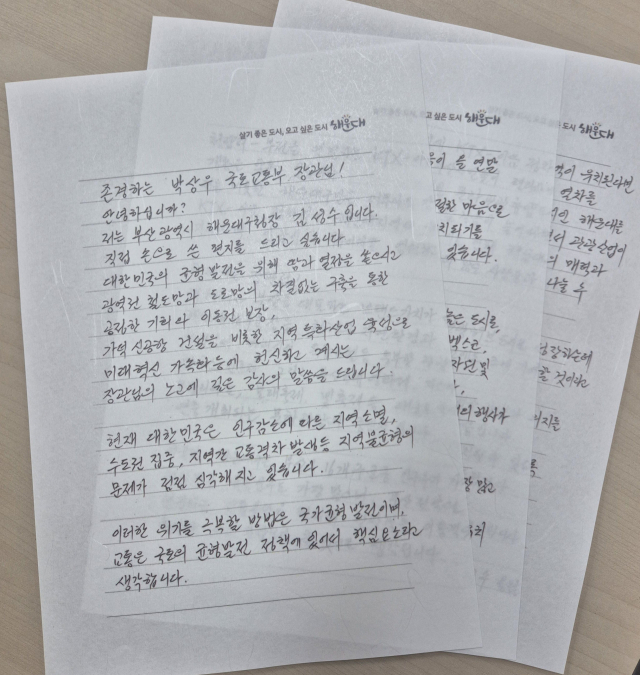 살기 좋은 도시, 오고 싶은 도시 해운대
존경하는 박상우 국토교통부 장관님!
안녕하십니까?
저는 부산광역시 해운대구청장 김성수입니다.
직접 손으로 쓴 편지를 드리고 싶습니다
대한민국의 균형발전을 위해 땀과 열정을 쏟으시고
광역권 철도망과 도로망의 차질없는 구축을 통한
공정한 기회와 이동권 보장,
가덕신공항 건설을 비롯한 지역 특화산업 육성으로
미래혁신 가속화 등에 헌신하고 계시는
장관님의 노고에 깊은 감사의 말씀을 드립니다.
현재 대한민국은 인구감소에 따른 지역소멸,
수도권 집중, 지역간 교통격차 발생 등 지역불균형의
문제가 점점 심각해지고 있습니다.
이러한 위기를 극복할 방법은 국가균형발전이며,
교통은 국토의 균형발전 정책에 있어서 핵심요소라고
생각합니다.
고 싶은 도시 해운대
을 연말
절한 마음으로
치되기를
있습니다.
높은 도시로,
벡스코,
자연 및
의 행사가
고 싶은 도시 해운대
유치된다면
열차를
인 해운대를
서 관광산업이
의 매력과
나눌 수
할 것이라